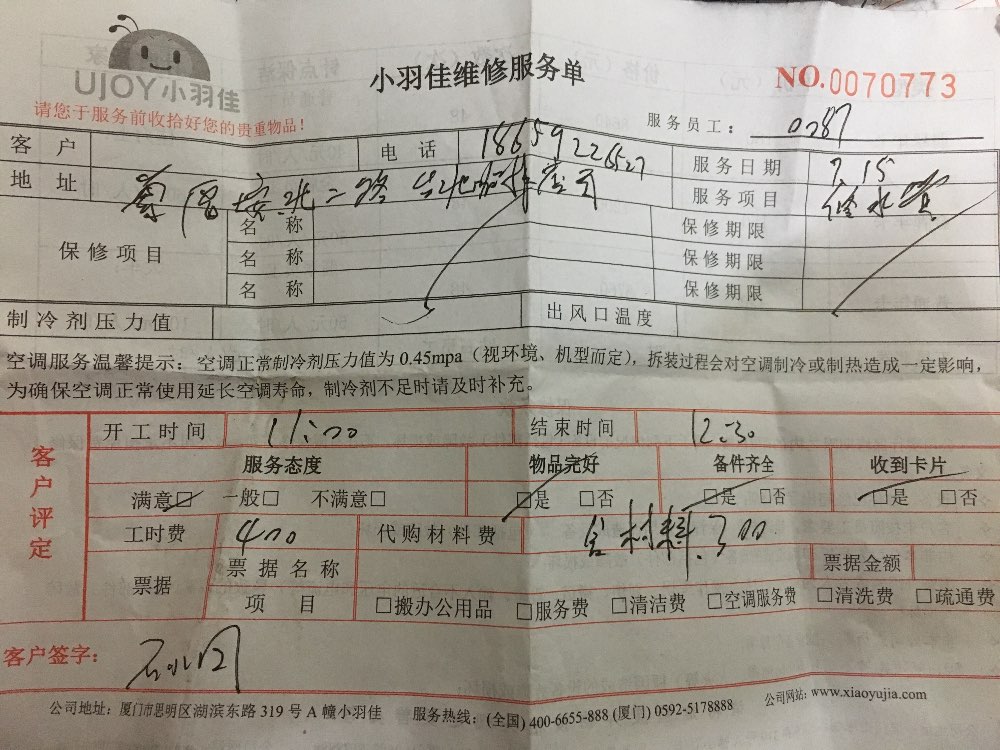 UJOY小羽佳
小羽佳维修服务单
NO.0070773
请您于服务前收拾好您的贵重物品!
服务员工: 0287
客户 电话 18659226527 服务日期 7.15
地址 二路 服务项目 修水管
保修项目 名称 保修期限
名称 保修期限
名称 保修期限
制冷剂压力值 出风口温度
空调服务温馨提示:空调正常制冷剂压力值为0.45mpa(视环境、机型而定),拆装过程会对空调制冷或制热造成一定影响,
为确保空调正常使用延长空调寿命,制冷剂不足时请及时补充。
客户评定
开工时间 11:00 结束时间 12:30
服务态度 物品完好 备件齐全 收到卡片
满意□ 一般□ 不满意□ □是 □否 □是 □否 □是 □否
工时费 400 代购材料费 含材料300
票据 票据名称 票据金额
项目 □搬办公用品 □服务费 □清洁费 □空调服务费 □清洗费 □疏通费
客户签字:
公司地址:厦门市思明区湖滨东路319号A幢小羽佳 服务热线:(全国)400-6655-888(厦门)0592-5178888 公司网站:www.xiaoyujia.com